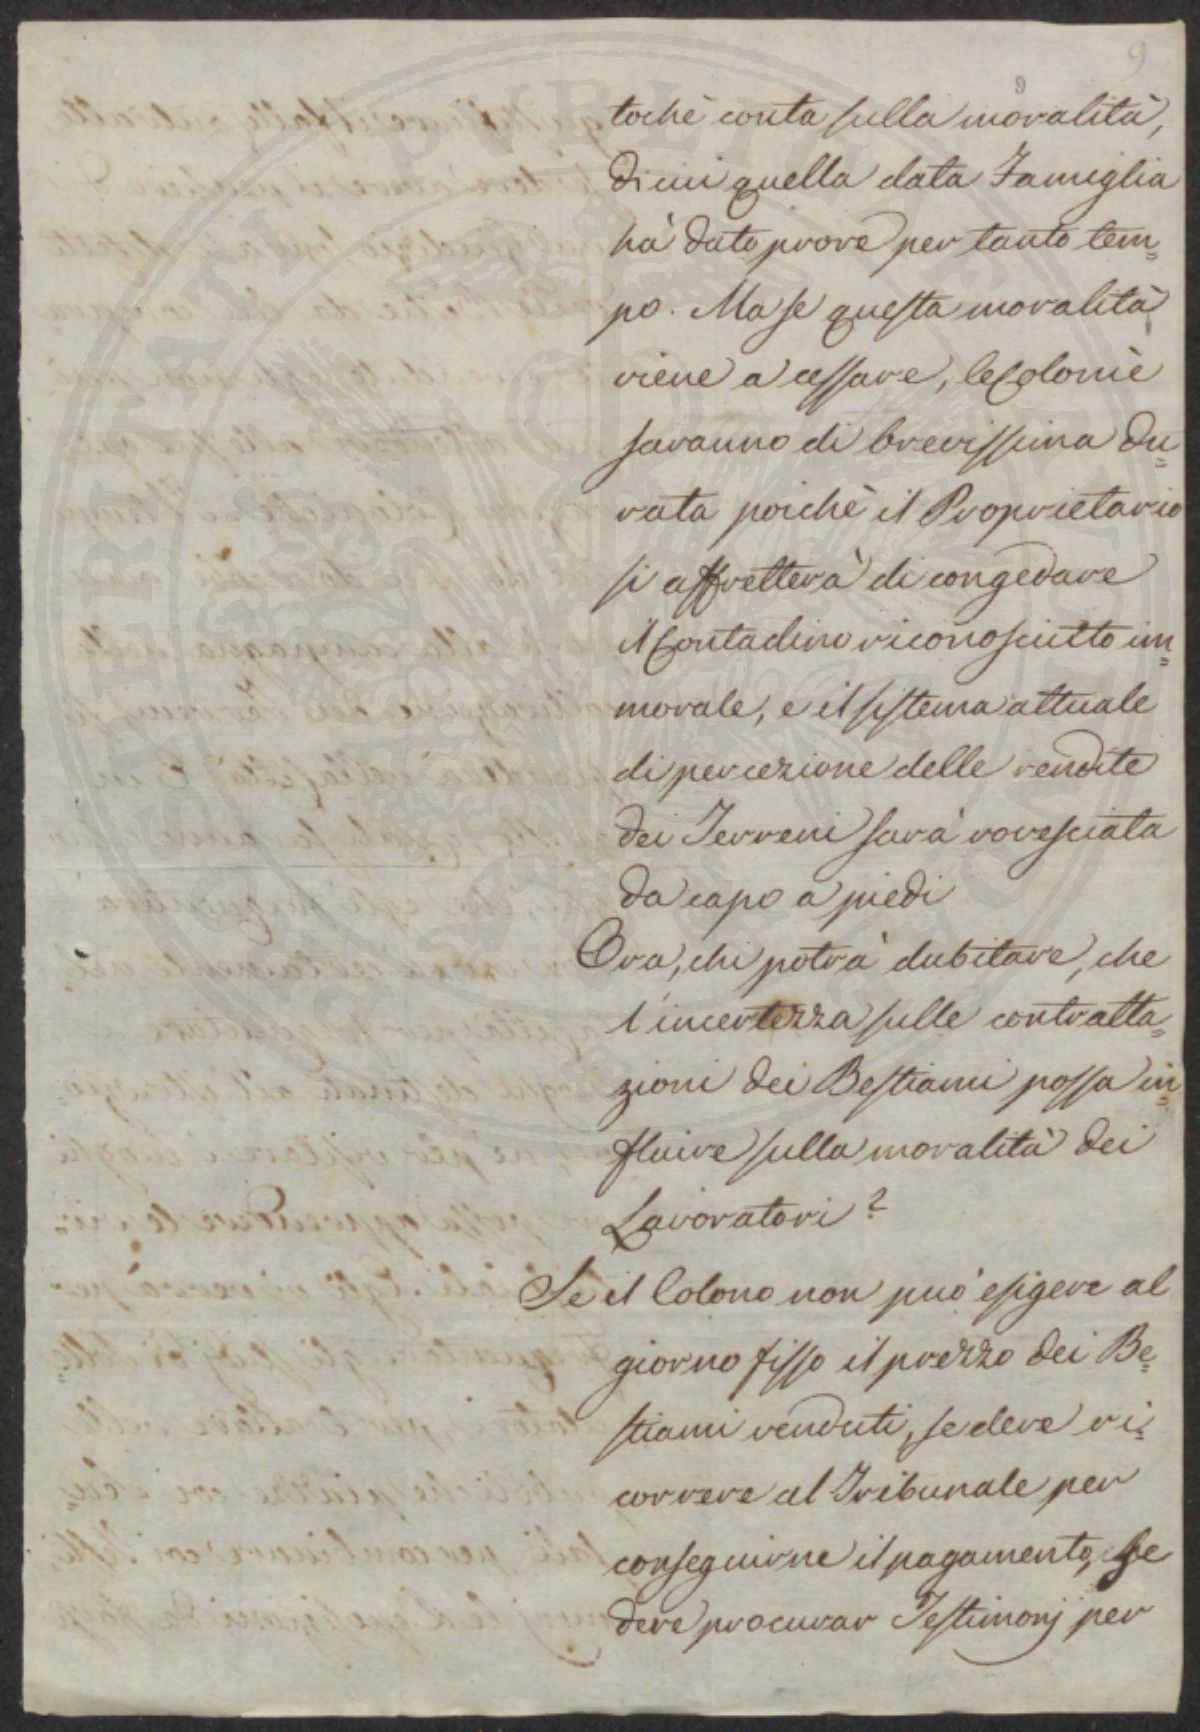 9
9
tochè conta sulla moralità,
di cui quella data Famiglia
hà dato prove per tanto tem=
po. Ma se questa moralità
viene a cessare, le Colonìe
saranno di brevissima du=
rata poichè il Proprietario
si affretterà di congedare
il Contadino riconosciuto im=
morale, e il sistema attuale
di percezione delle rendite
dei Terreni sarà rovesciata
da capo a piedi
Ora, chi potrà dubitare, che
l'incertezza sulle contratta=
zioni dei Bestiami possa in=
fluire sulla moralità dei
Lavoratori?
Se il Colono non può esigere al
giorno fisso il prezzo dei Be=
stiami venduti, se deve ri=
correre al Tribunale per
conseguirne il pagamento, se
deve procurar Testimonj per